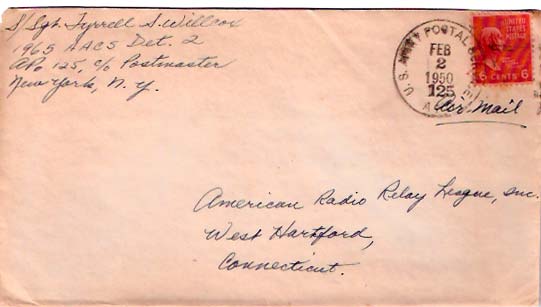 S/Sgt. Tyrrell S. Willcox
1965 AACS Det. 2
APO 125, c/o Postmaster
New York, N.Y.
U.S. ARMY POSTAL
FEB
2
1950
125
A
UNITED
STATES
POSTAGE
6 CENTS 6
Air Mail
American Radio Relay League, Inc.
West Hartford,
Connecticut.